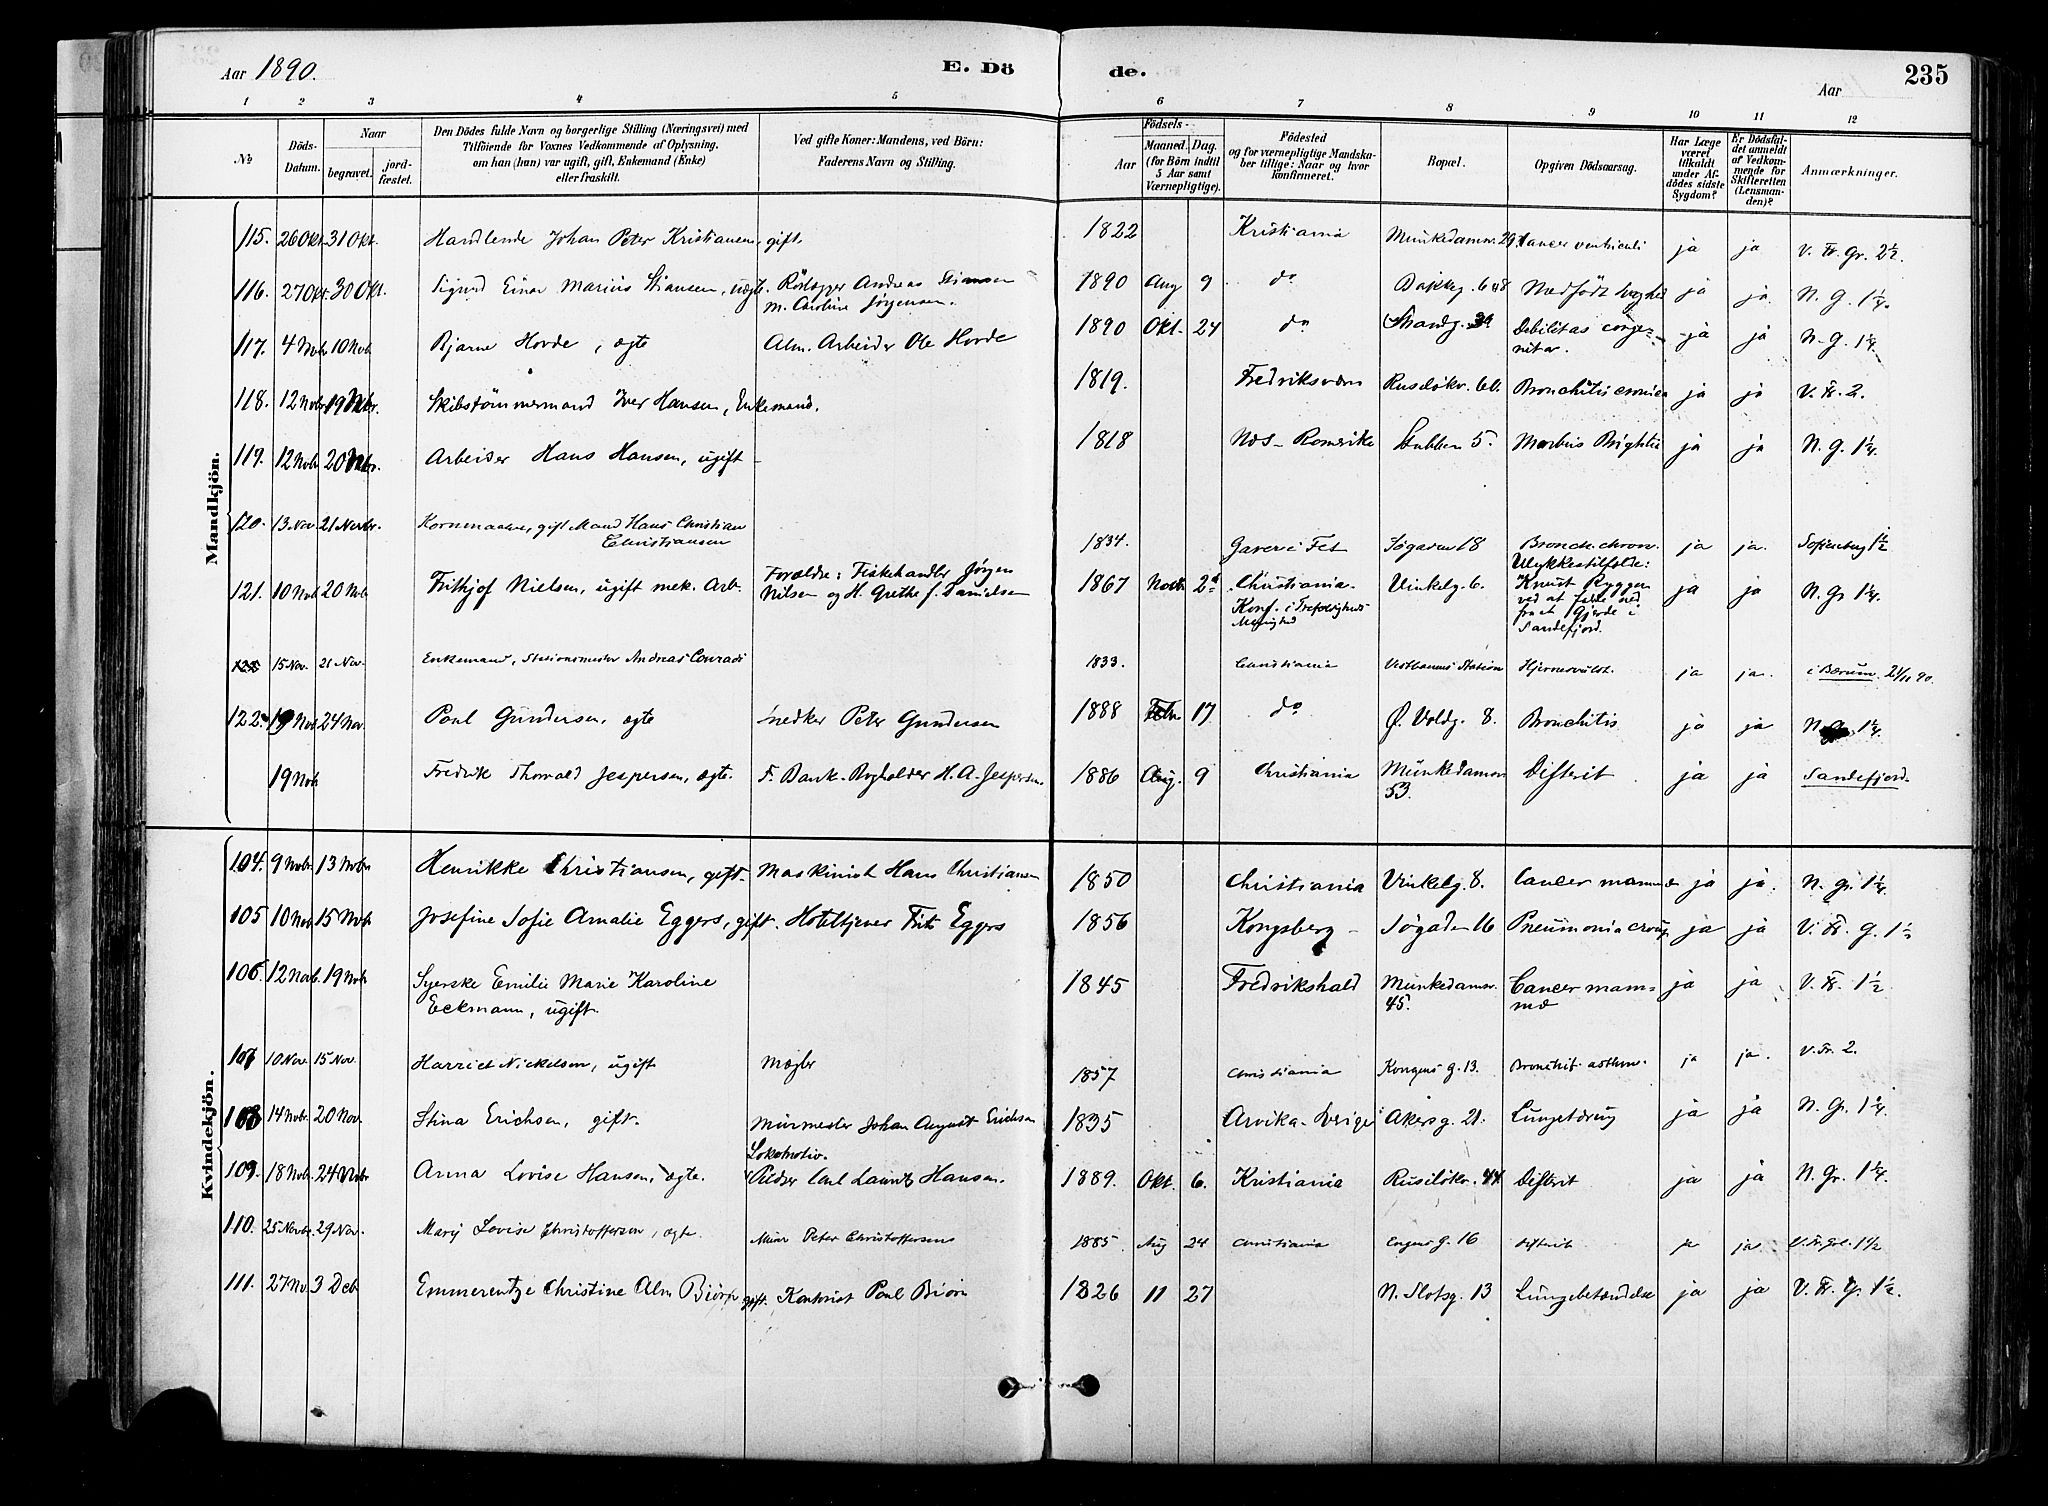 Aar 1890.
E. Dö
de.
Aar
235
1 2 3 4 5 6 7 8 9 10 11 12
№
Döds-
Datum.
Naar
begravet.
jord-
fæstet.
Den Dödes fulde Navn og borgerlige Stilling (Næringsvei) med
Tilföiende for Voxnes Vedkommende af Oplysning,
om han (hun) var ugift, gift, Enkemand (Enke)
eller fraskilt.
Ved gifte Koner: Mandens, ved Börn:
Faderens Navn og Stilling.
Födsels-
Aar
Maaned. Dag.
(for Börn indtil
5 Aar samt
Værnepligtige).
Födested
og for værnepligtige Mandska-
ber tillige: Naar og hvor
konfirmeret.
Bopæl.
Opgiven Dödsaarsag.
Har Læge
været
tilkaldt
under Af-
dödes sidste
Sygdom?
Er Dödsfal-
det anmeldt
af Vedkom-
mende for
Skifteretten
(Lensman-
den)?
Anmærkninger.
Mandkjön.
115. 26 Okt. 31 Okt. Handlende Johan Peter Kristiansen, gift. 1822 Kristiania Munkedamsv. 29 Cancer ventriculi ja ja V. Fr. Gr. 2½.
116. 27 Okt. 30 Okt. Sigurd Einar Marius Stiansen, uægt. Rörlægger Andreas
m. Caroline Jörgensen. 1890 Aug 9 do Bakkg. Medfödt Svaghed ja ja. N. G. 1¼.
117. 4 Nobr 10 Nob Bjarne Hovde, ægte Alm. Arbeider Ole Hovde 1890 Okt. 24 do Strandg. 39 Debilitas conge-
nitar. ja ja N. G. 1¼.
118. 12 Nobr 19 Nobr. Skibstömmermand Iver Hansen, Enkemand. 1819. Fredriksværn Ruselökv. 6b. Bronchitis cronica ja ja V. Fr. 2.
119. 12 Nobr 20 Nobr. Arbeider Hans Hansen, ugift 1818 Næs - Romerike Stubben 5. Morbus Brightii ja ja N. G. 1¼.
120. 13 Nov 21 Novbr. gift Mand Hans Christian
Christiansen 1834. i Fet Sögaden 18 Bronch. chron. ja ja. Sofienberg 1½
121. 10 Nobr 20 Nobr Frithjof Nielsen, ugift mek. Arb. Forældre: Fiskehandler Jörgen
Nilsen og H. Grethe f. Danielsen 1867 Novbr 2d Christiania.
Konf. i Trefoldigheds
Menighed Vinkelg. 6. Ulykkestilfælde:
Knust Ryggen
ved at falde ned
fra et Gjerde i
Sandefjord. ja ja N. Gr 1¼.
15 Nov. 21 Nov. Enkemand, Stationsmester Andreas Conradi 1833. Christiania Vestbanens Station Hjernesvulst. ja ja. i Bærum. 21/11 90.
122. 19 Nob 24 Nov. Poul Gundersen, ægte Snedker Peter Gundersen 1888 Febr 17 do Ö. Voldg. 8. Bronchitis ja ja N. 1¼.
19 Nob Fredrik Thorvald Jespersen, ægte. F. Bank-Bogholder H. A. Jespersen. 1886 Aug. 9 Christiania Munkedamsv
53. Difterit ja ja Sandefjord.
Kvindekjön.
104. 9 Nobr. 13 Nobr Henrikke Christiansen, gift. Maskinist Hans Christiansen 1850 Christiania Vinkelg. 8. Cancer mammæ ja ja. N. gr. 1¼.
105 10 Nob 15 Nob Josefine Sofie Amalie Eggers, gift. Hoteltjener Frits Eggers 1856 Kongsberg Sögaden 16 Pneumonia croup ja ja V. Fr. G. 1½
106. 12 Nob. 19 Nob. Syerske Emilie Marie Karoline
Eckmann, ugift. 1845 Fredrikshald Munkedamsv.
45. Cancer mam-
mæ ja ja V. Fr. 1½
107 10 Nov. 15 Nov. Harriet Nickelsen, ugift Mægler 1857 Christiania Kongens g. 13. Bronchit. asthm. ja ja. V. Fr. 2.
108 14 Nobr. 20 Nov. Stina Erichsen, gift. Murmester Johan August Erichsen 1835 Arvika - Sverige Akersg. 21. Lungetæring ja ja N. Gr. 1¼
109. 18 Nob. 24 Nobr Anna Lovise Hansen, ægte. Lokomotiv-
Pudser Carl Lauritz Hansen. 1889. Okt. 6. Kristiania Ruselökv. 44 Difterit ja ja N. Gr. 1¼.
110. 25 Novbr. 29 Nov. Mary Lovise Christoffersen, ægte. Murer Peter Christoffersens 1885. Aug 24 Christiania Engens G. 16 Difterit ja ja V. Fr. Gr. 1½
111. 27 No. 3 Deb Emmerentze Christine Alm Biörn gift. Kontorist Poul Biörn 1826 11 27 N. Slotsg. 13 Lungebetændelse ja ja V. Fr. Gr. 1½.